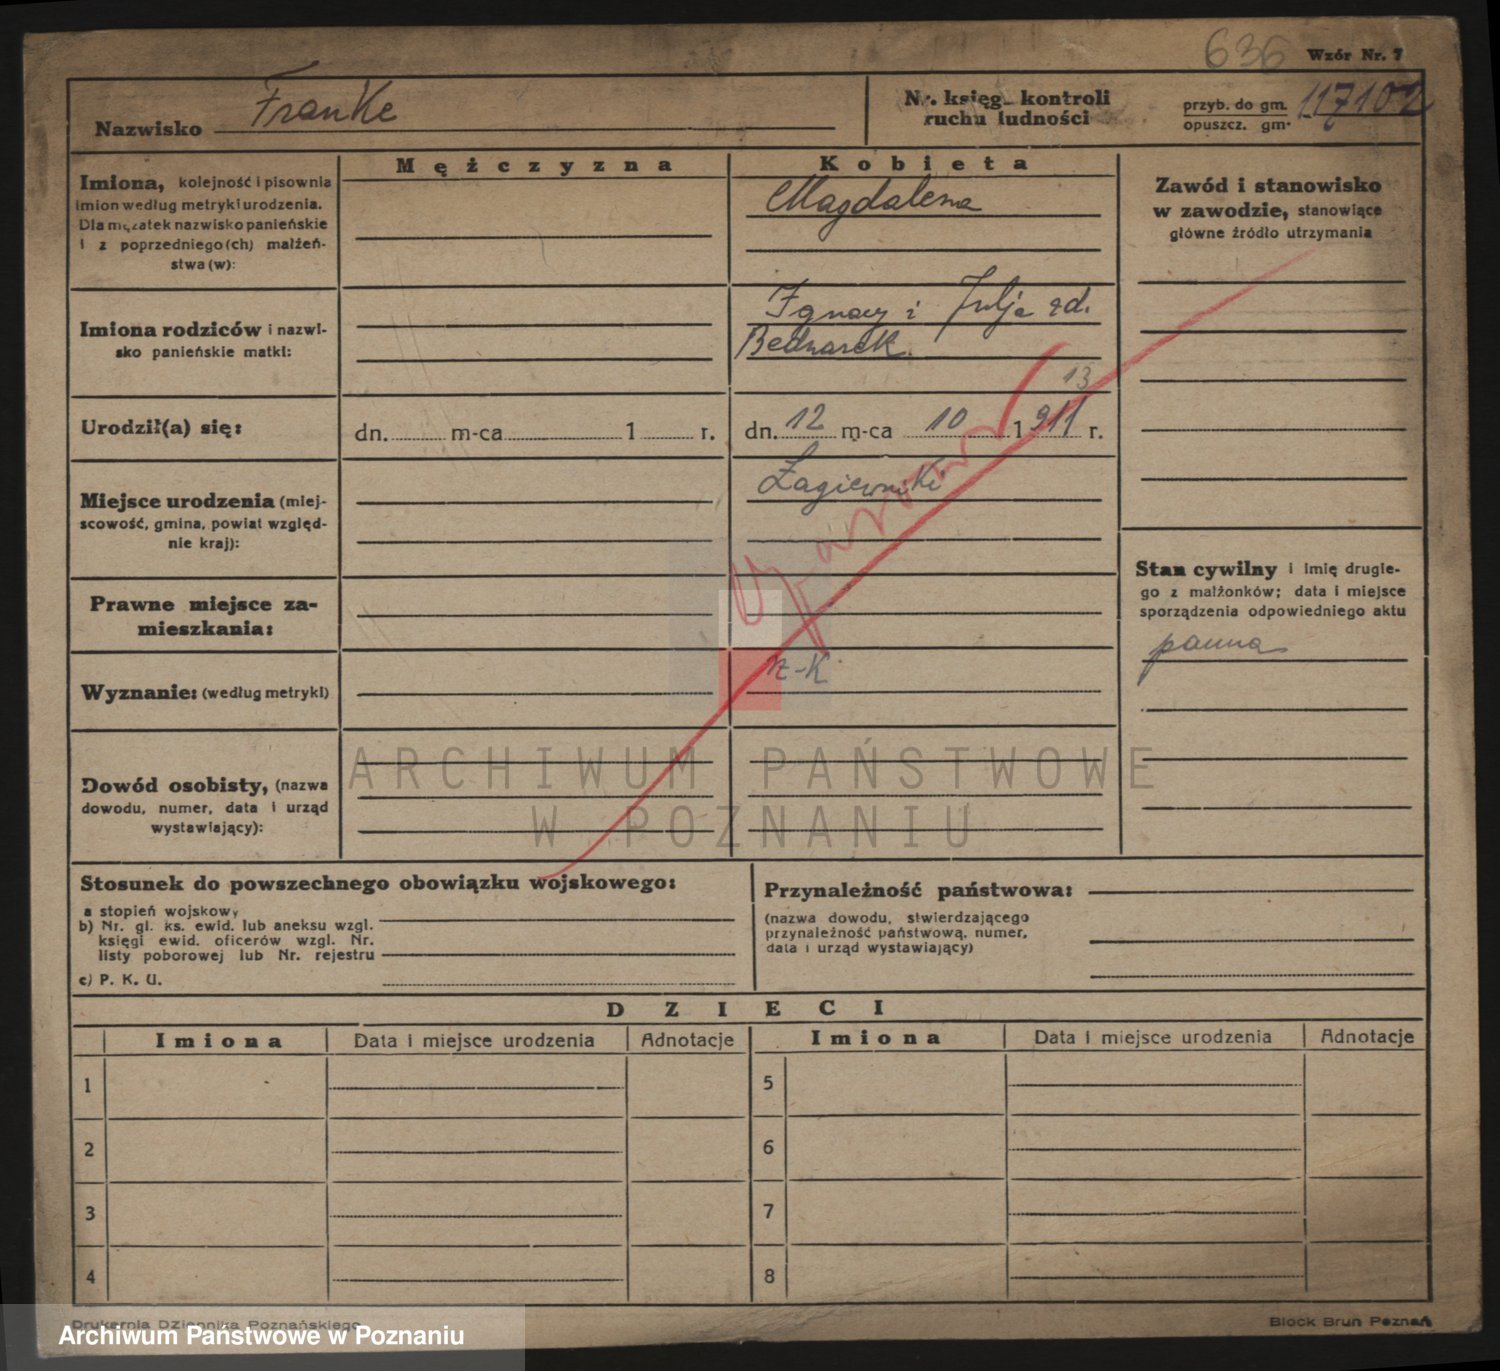 636 Wzór Nr. 7
Nazwisko Franke
Nr. księg. kontroli
ruchu ludności
przyb. do gm. 117102
opuszcz. gm.
Mężczyzna
Kobieta
Imiona, kolejność i pisownia
imion według metryki urodzenia.
Dla mężatek nazwisko panieńskie
i z poprzedniego(ch) małżeń-
stwa(w):
Magdalena
Zawód i stanowisko
w zawodzie, stanowiące
główne źródło utrzymania
Imiona rodziców i nazwi-
sko panieńskie matki:
Ignacy i Julja zd.
Bednarek
13
Urodził(a) się:
dn. m-ca 1 r.
dn. 12 m-ca 10 1911 r.
Miejsce urodzenia (miej-
scowość, gmina, powiat względ-
nie kraj):
Łagiewniki
Prawne miejsce za-
mieszkania:
Stan cywilny i imię drugie-
go z małżonków; data i miejsce
sporządzenia odpowiedniego aktu
panna
Wyznanie: (według metryki)
rz-k
Dowód osobisty, (nazwa
dowodu, numer, data i urząd
wystawiający):
ARCHIWUM PAŃSTWOWE
W POZNANIU
Stosunek do powszechnego obowiązku wojskowego:
a stopień wojskowy
b) Nr. gl. ks. ewid. lub aneksu wzgl.
księgi ewid. oficerów wzgl. Nr.
listy poborowej lub Nr. rejestru
c) P. K. U.
Przynależność państwowa:
(nazwa dowodu, stwierdzającego
przynależność państwową, numer,
data i urząd wystawiający)
DZIECI
Imiona Data i miejsce urodzenia Adnotacje Imiona Data i miejsce urodzenia Adnotacje
1 5
2 6
3 7
4 8
Drukarnia Dziennika Poznańskiego
Block Brun Poznań
Archiwum Państwowe w Poznaniu